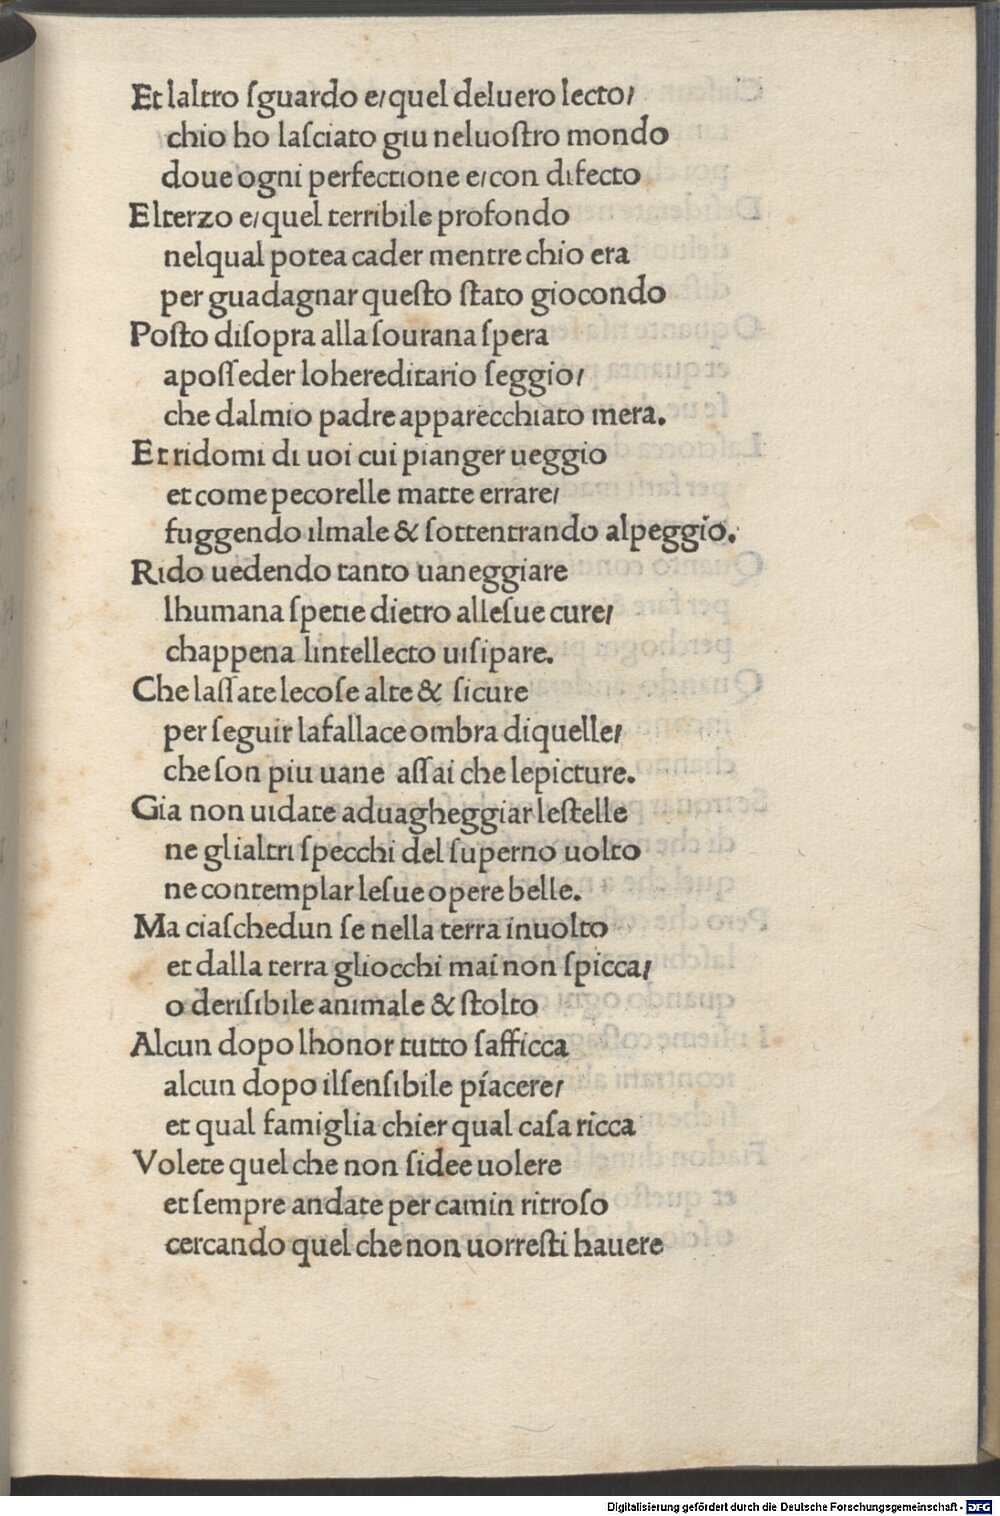 Et laltro ſguardo e/quel deluero lecto/
chio ho laſciato giu neluoſtro mondo
doue ogni perfectione e/con difecto
Elterzo e/quel terribile profondo
nelqual potea cader mentre chio era
per guadagnar queſto ſtato giocondo
Poſto diſopra alla ſourana ſpera
apoſſeder lohereditario ſeggio/
che dalmio padre apparecchiato mera.
Et ridomi di uoi cui pianger ueggio
et come pecorelle matte errare/
fuggendo ilmale & ſottentrando alpeggio.
Rido uedendo tanto uaneggiare
lhumana ſpetie dietro alleſue cure/
chappena lintellecto uiſipare.
Che laſſate lecoſe alte & ſicure
per ſeguir lafallace ombra diquelle/
che ſon piu uane aſſai che lepicture.
Gia non uidate aduagheggiar leſtelle
ne glialtri ſpecchi del ſuperno uolto
ne contemplar leſue opere belle.
Ma ciaſchedun ſe nella terra inuolto
et dalla terra gliocchi mai non ſpicca/
o deriſibile animale & ſtolto
Alcun dopo lhonor tutto ſafficca
alcun dopo ilſenſibile piacere/
et qual famiglia chier qual caſa ricca
Volete quel che non ſidee uolere
et ſempre andate per camin ritroſo
cercando quel che non uorreſti hauere
Digitalisierung gefördert durch die Deutsche Forschungsgemeinschaft - DFG